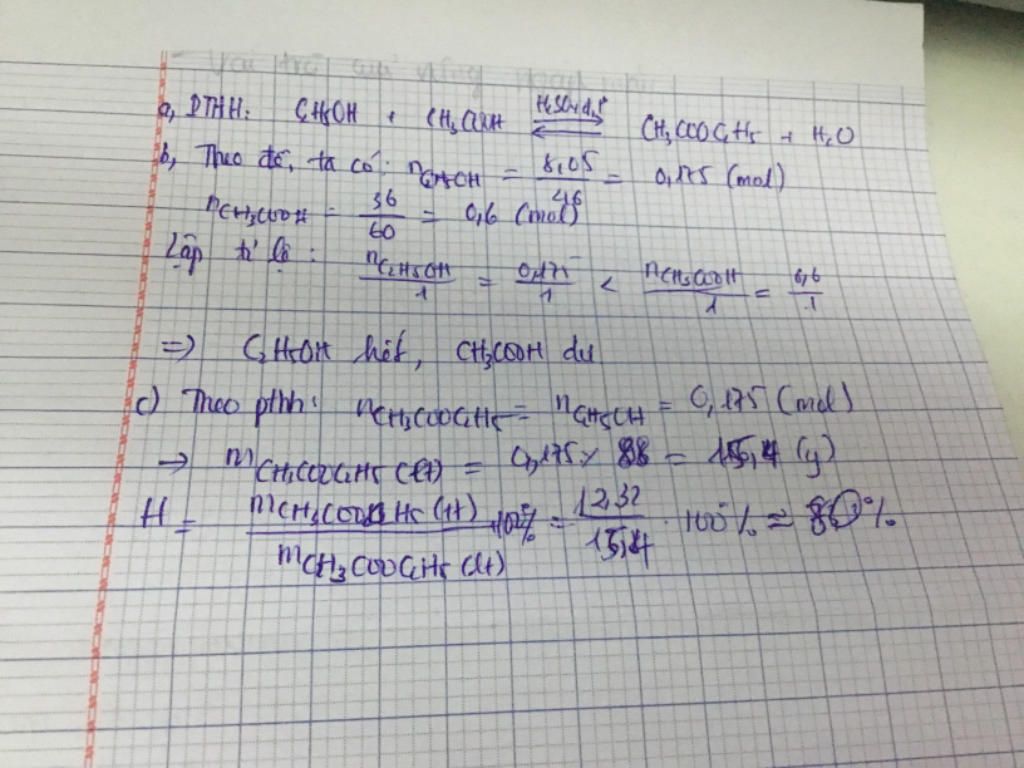 a, PTHH: C2H5OH + CH3COOH ⇌ (H2SO4đ, t°) CH3COOC2H5 + H2O
b, Theo đề, ta có: nC2H5OH = 8,05/46 = 0,175 (mol)
nCH3COOH = 36/60 = 0,6 (mol)
Lập tỉ lệ: nC2H5OH/1 = 0,175/1 < nCH3COOH/1 = 0,6/1
=> C2H5OH hết, CH3COOH dư
c) Theo pthh: nCH3COOC2H5 = nC2H5OH = 0,175 (mol)
→ mCH3COOC2H5 (lt) = 0,175 x 88 = 15,4 (g)
H = mCH3COOC2H5 (tt)/mCH3COOC2H5 (lt) . 100% = 12,32/15,4 . 100% = 80%